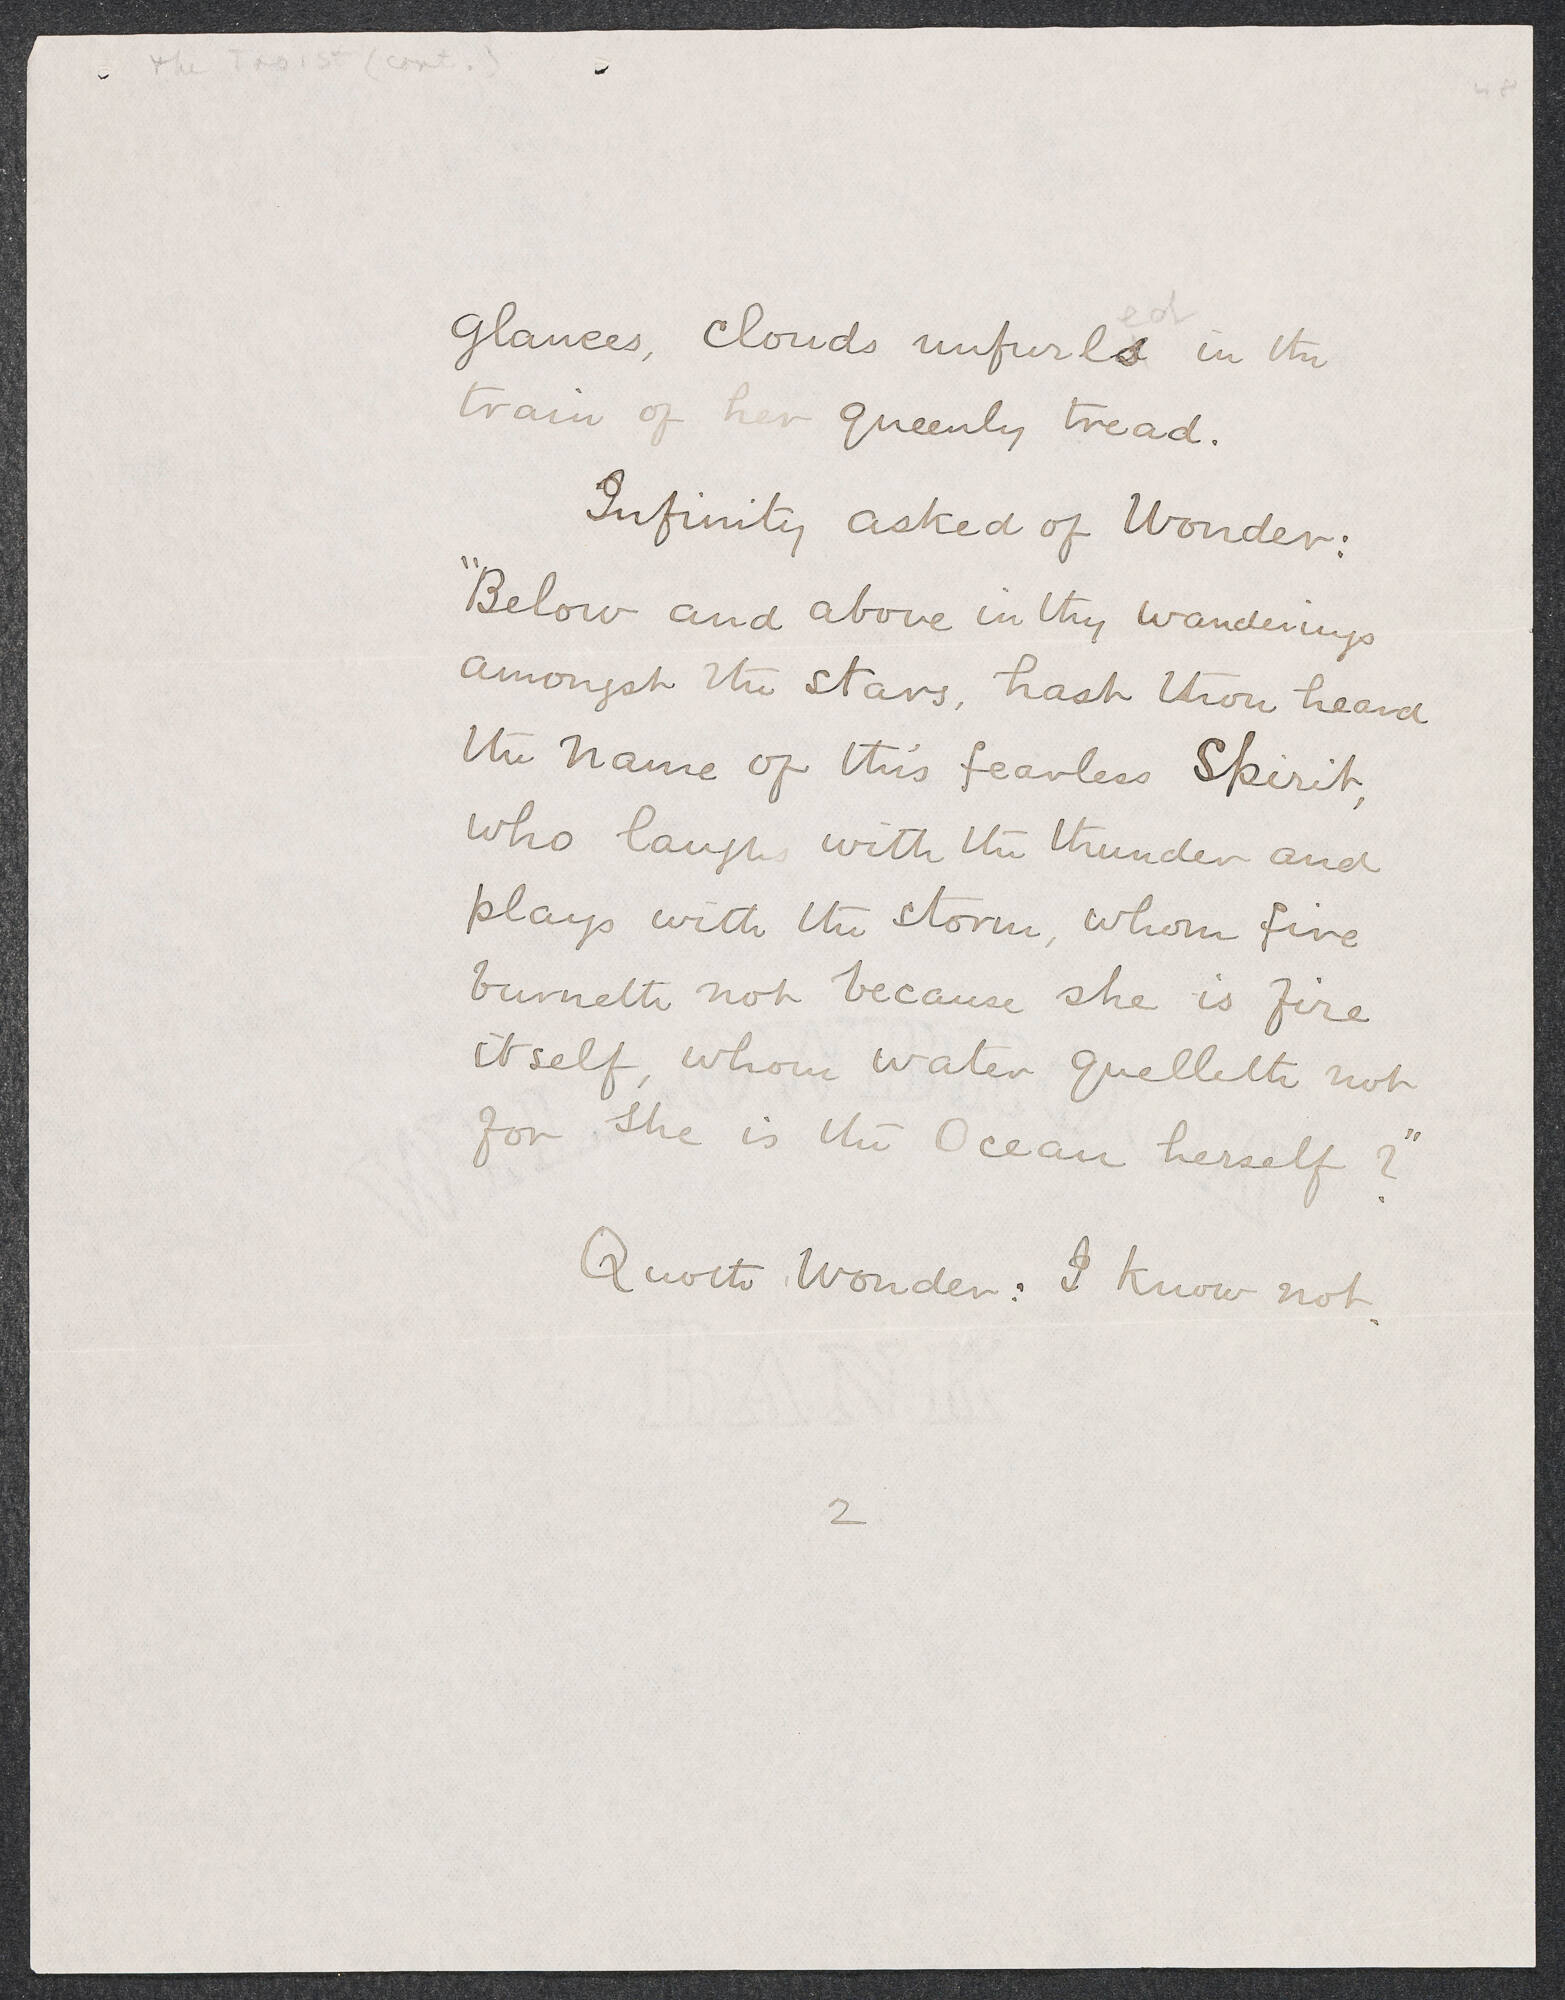 the Taoist (cont.)
48
ed
Glances, Clouds unfurls in the
train of her queenly tread.
Infinity asked of Wonder:
"Below and above in thy wanderings
amongst the stars, hast thou heard
the name of this fearless Spirit,
who laughs with the thunder and
plays with the storm, whom fire
burneth not because she is fire
itself, whom water quelleth not
for she is the Ocean herself?"
Quoth Wonder: I know not.
2